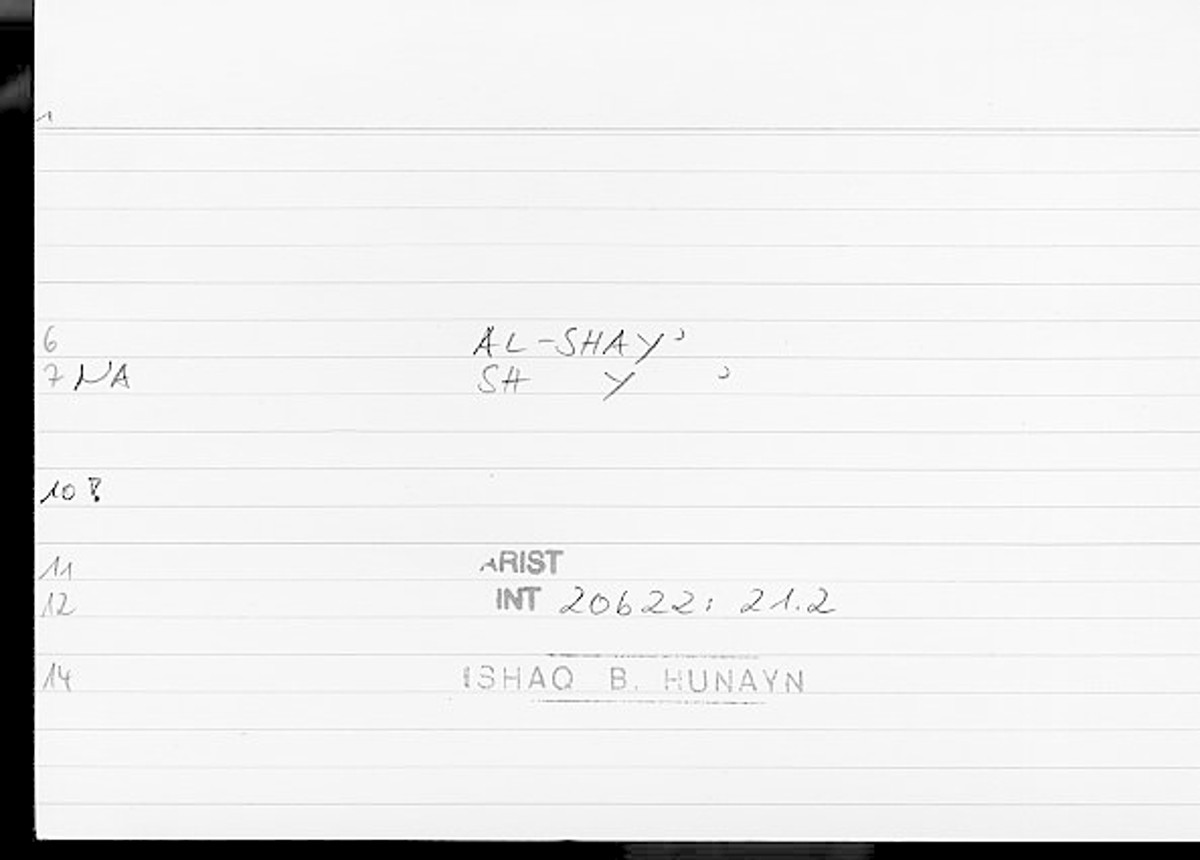 1
6 AL-SHAYʾ
7 NA SH Y ʾ
10
11 ARIST
12 INT 20b22; 21.2
14 ISHAQ B. HUNAYN